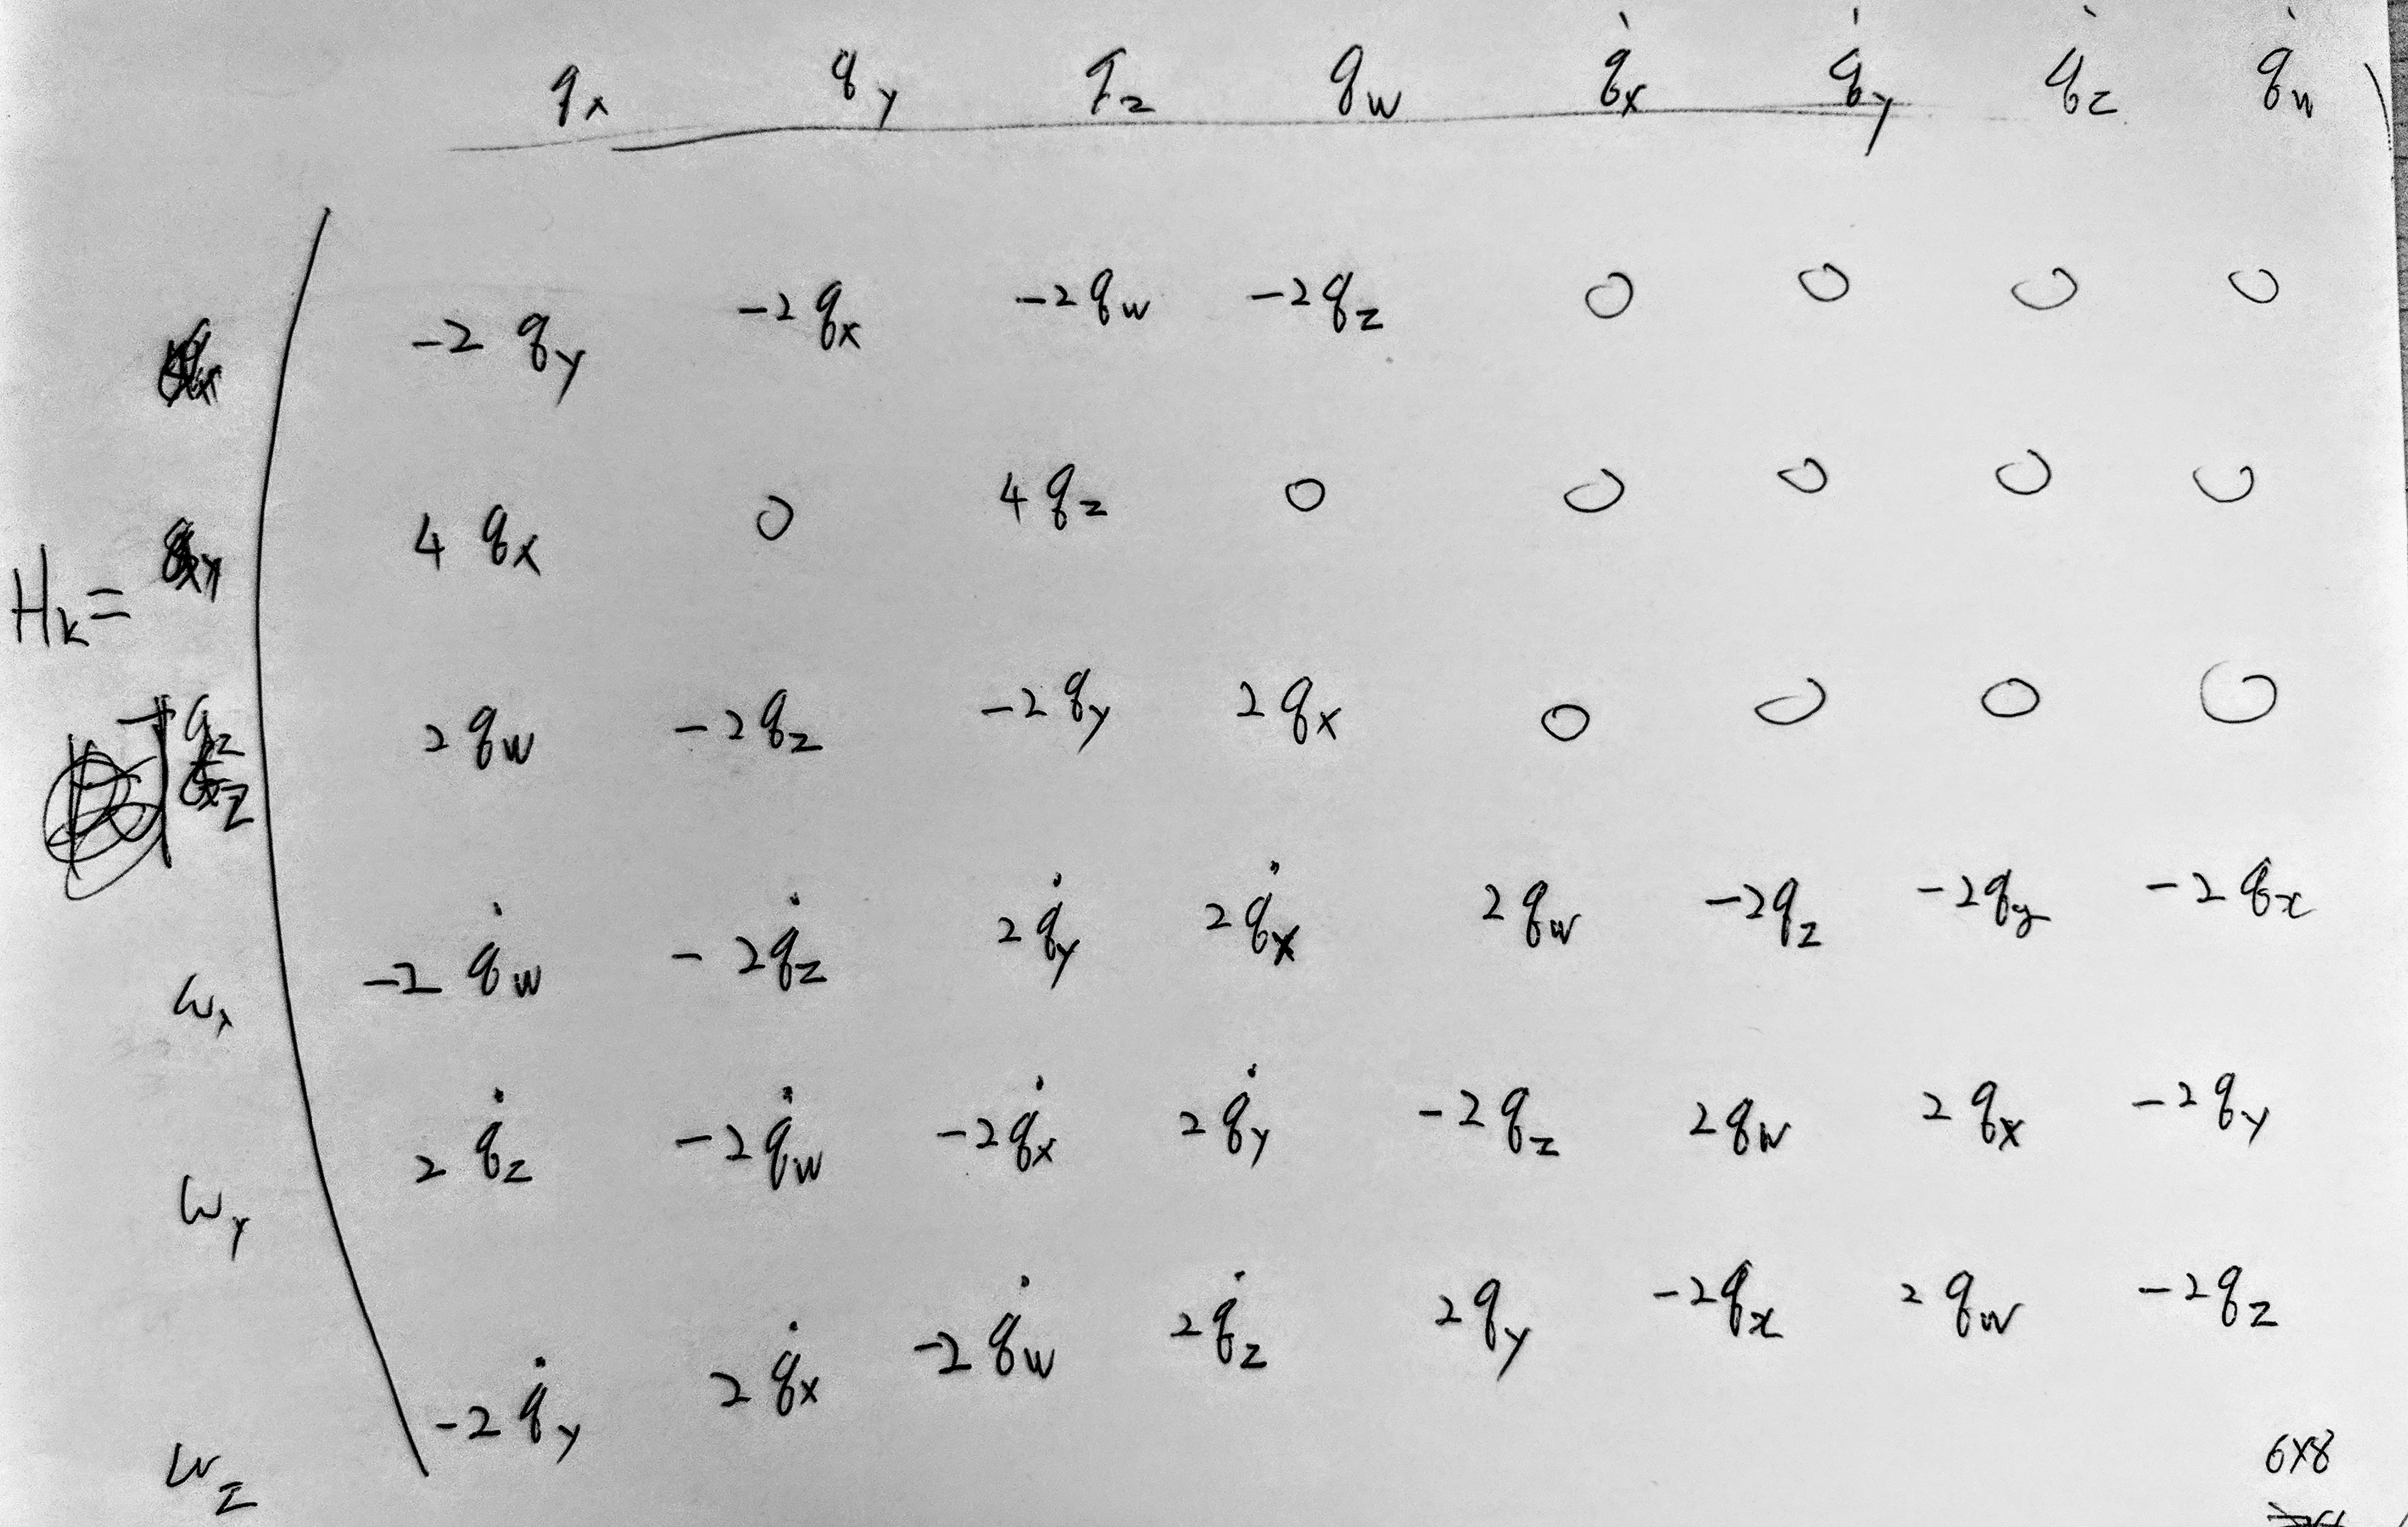 qx qy qz qw q̇x q̇y q̇z q̇w
-2qy -2qx -2qw -2qz 0 0 0 0
4qx 0 4qz 0 0 0 0 0
Hk =
2qw -2qz -2qy 2qx 0 0 0 0
ωx -2q̇w -2q̇z 2q̇y 2q̇x 2qw -2qz -2qy -2qx
ωy 2q̇z -2q̇w -2q̇x 2q̇y -2qz 2qw 2qx -2qy
ωz -2q̇y 2q̇x -2q̇w 2q̇z 2qy -2qx 2qw -2qz
6x8